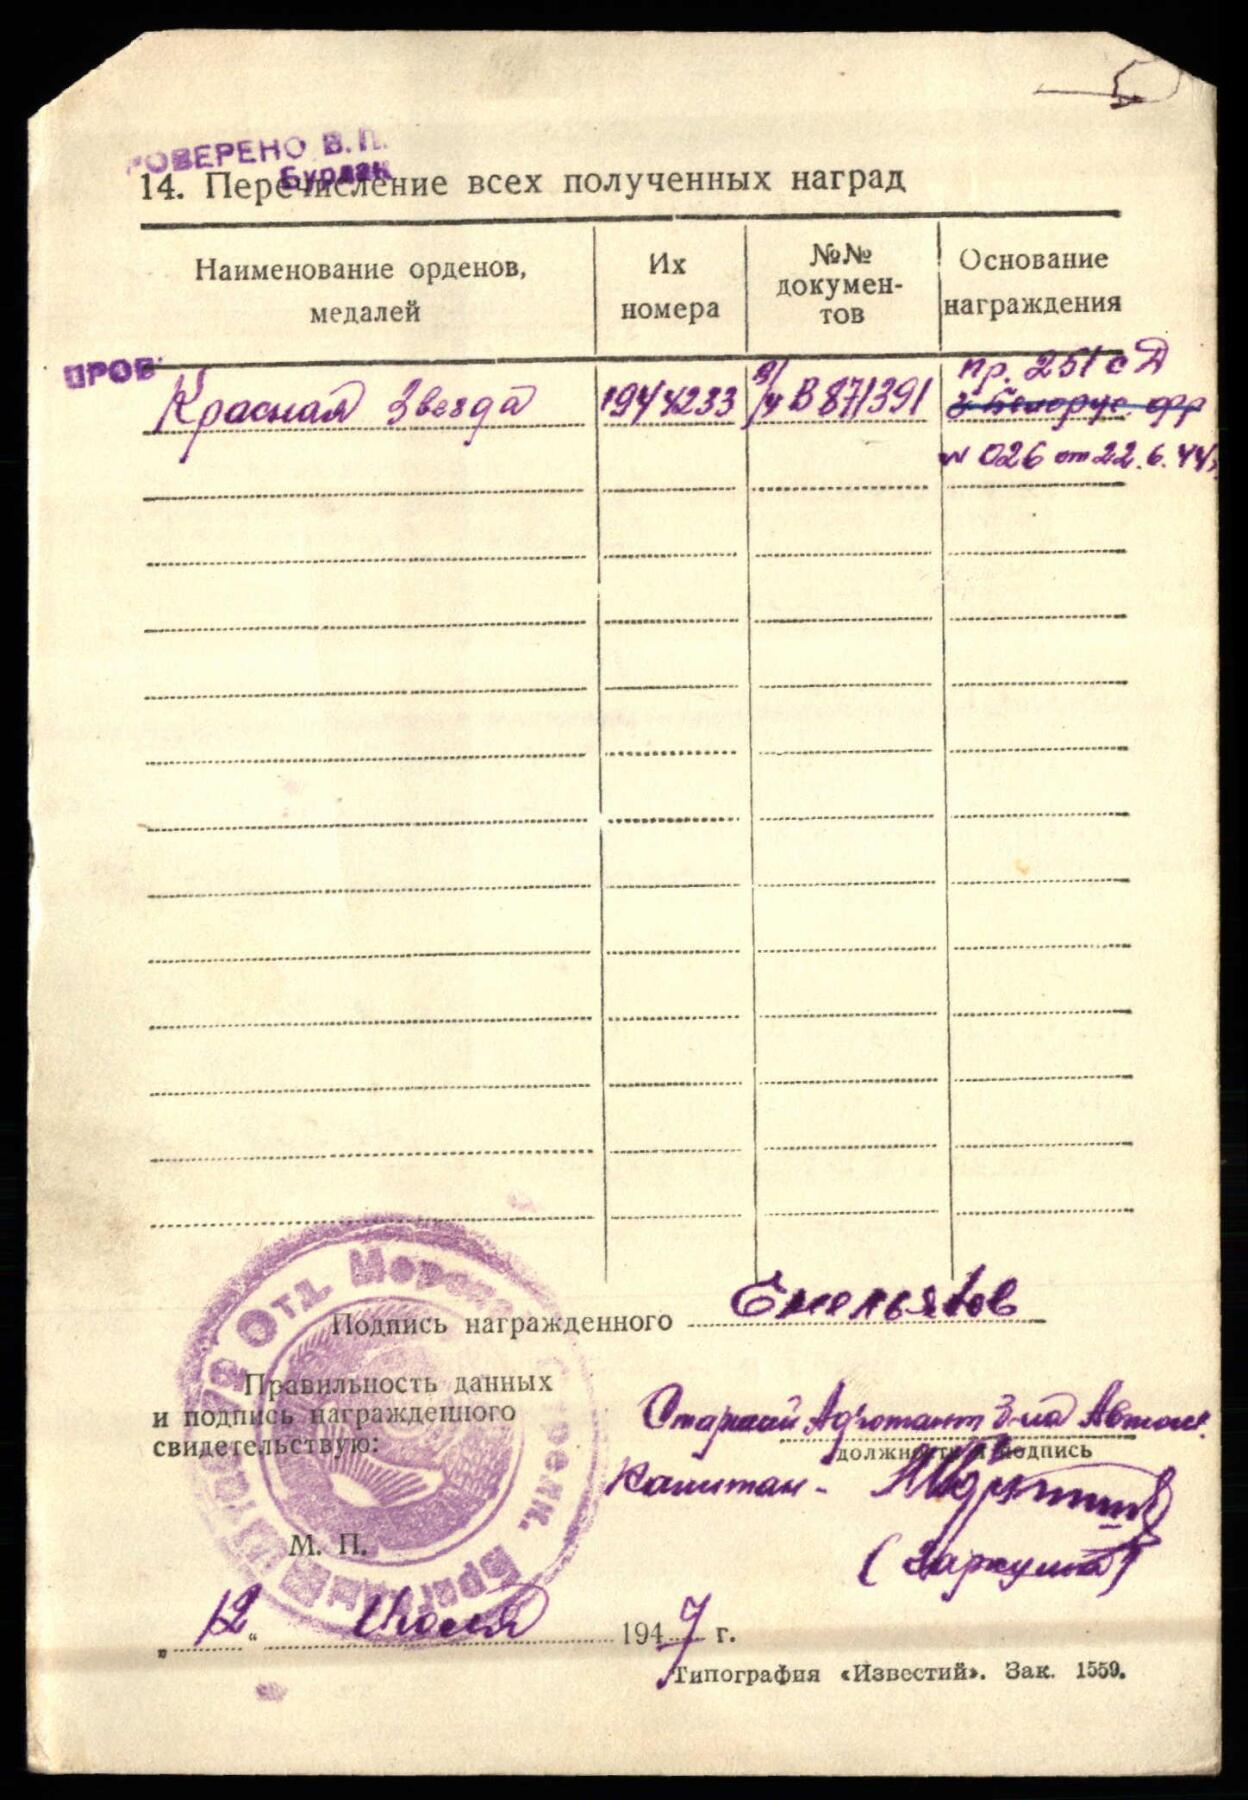 РОВЕРЕНО В.П.
Бурлак
14. Перечисление всех полученных наград
Наименование орденов, медалей
Их номера
№№ докумен-тов
Основание награждения
ПРОВ
Красная Звезда
1944233
В 871391
пр. 251 сд
3 Белорус. фр
№ 026 от 22.6.44г.
Подпись награжденного Емельянов
Правильность данных
и подпись награжденного
свидетельствую:
Старший Адъютант 3-го
должность и подпись
Капитан -
М. П.
„12“ Июля 1947 г.
Типография «Известий». Зак. 1559.